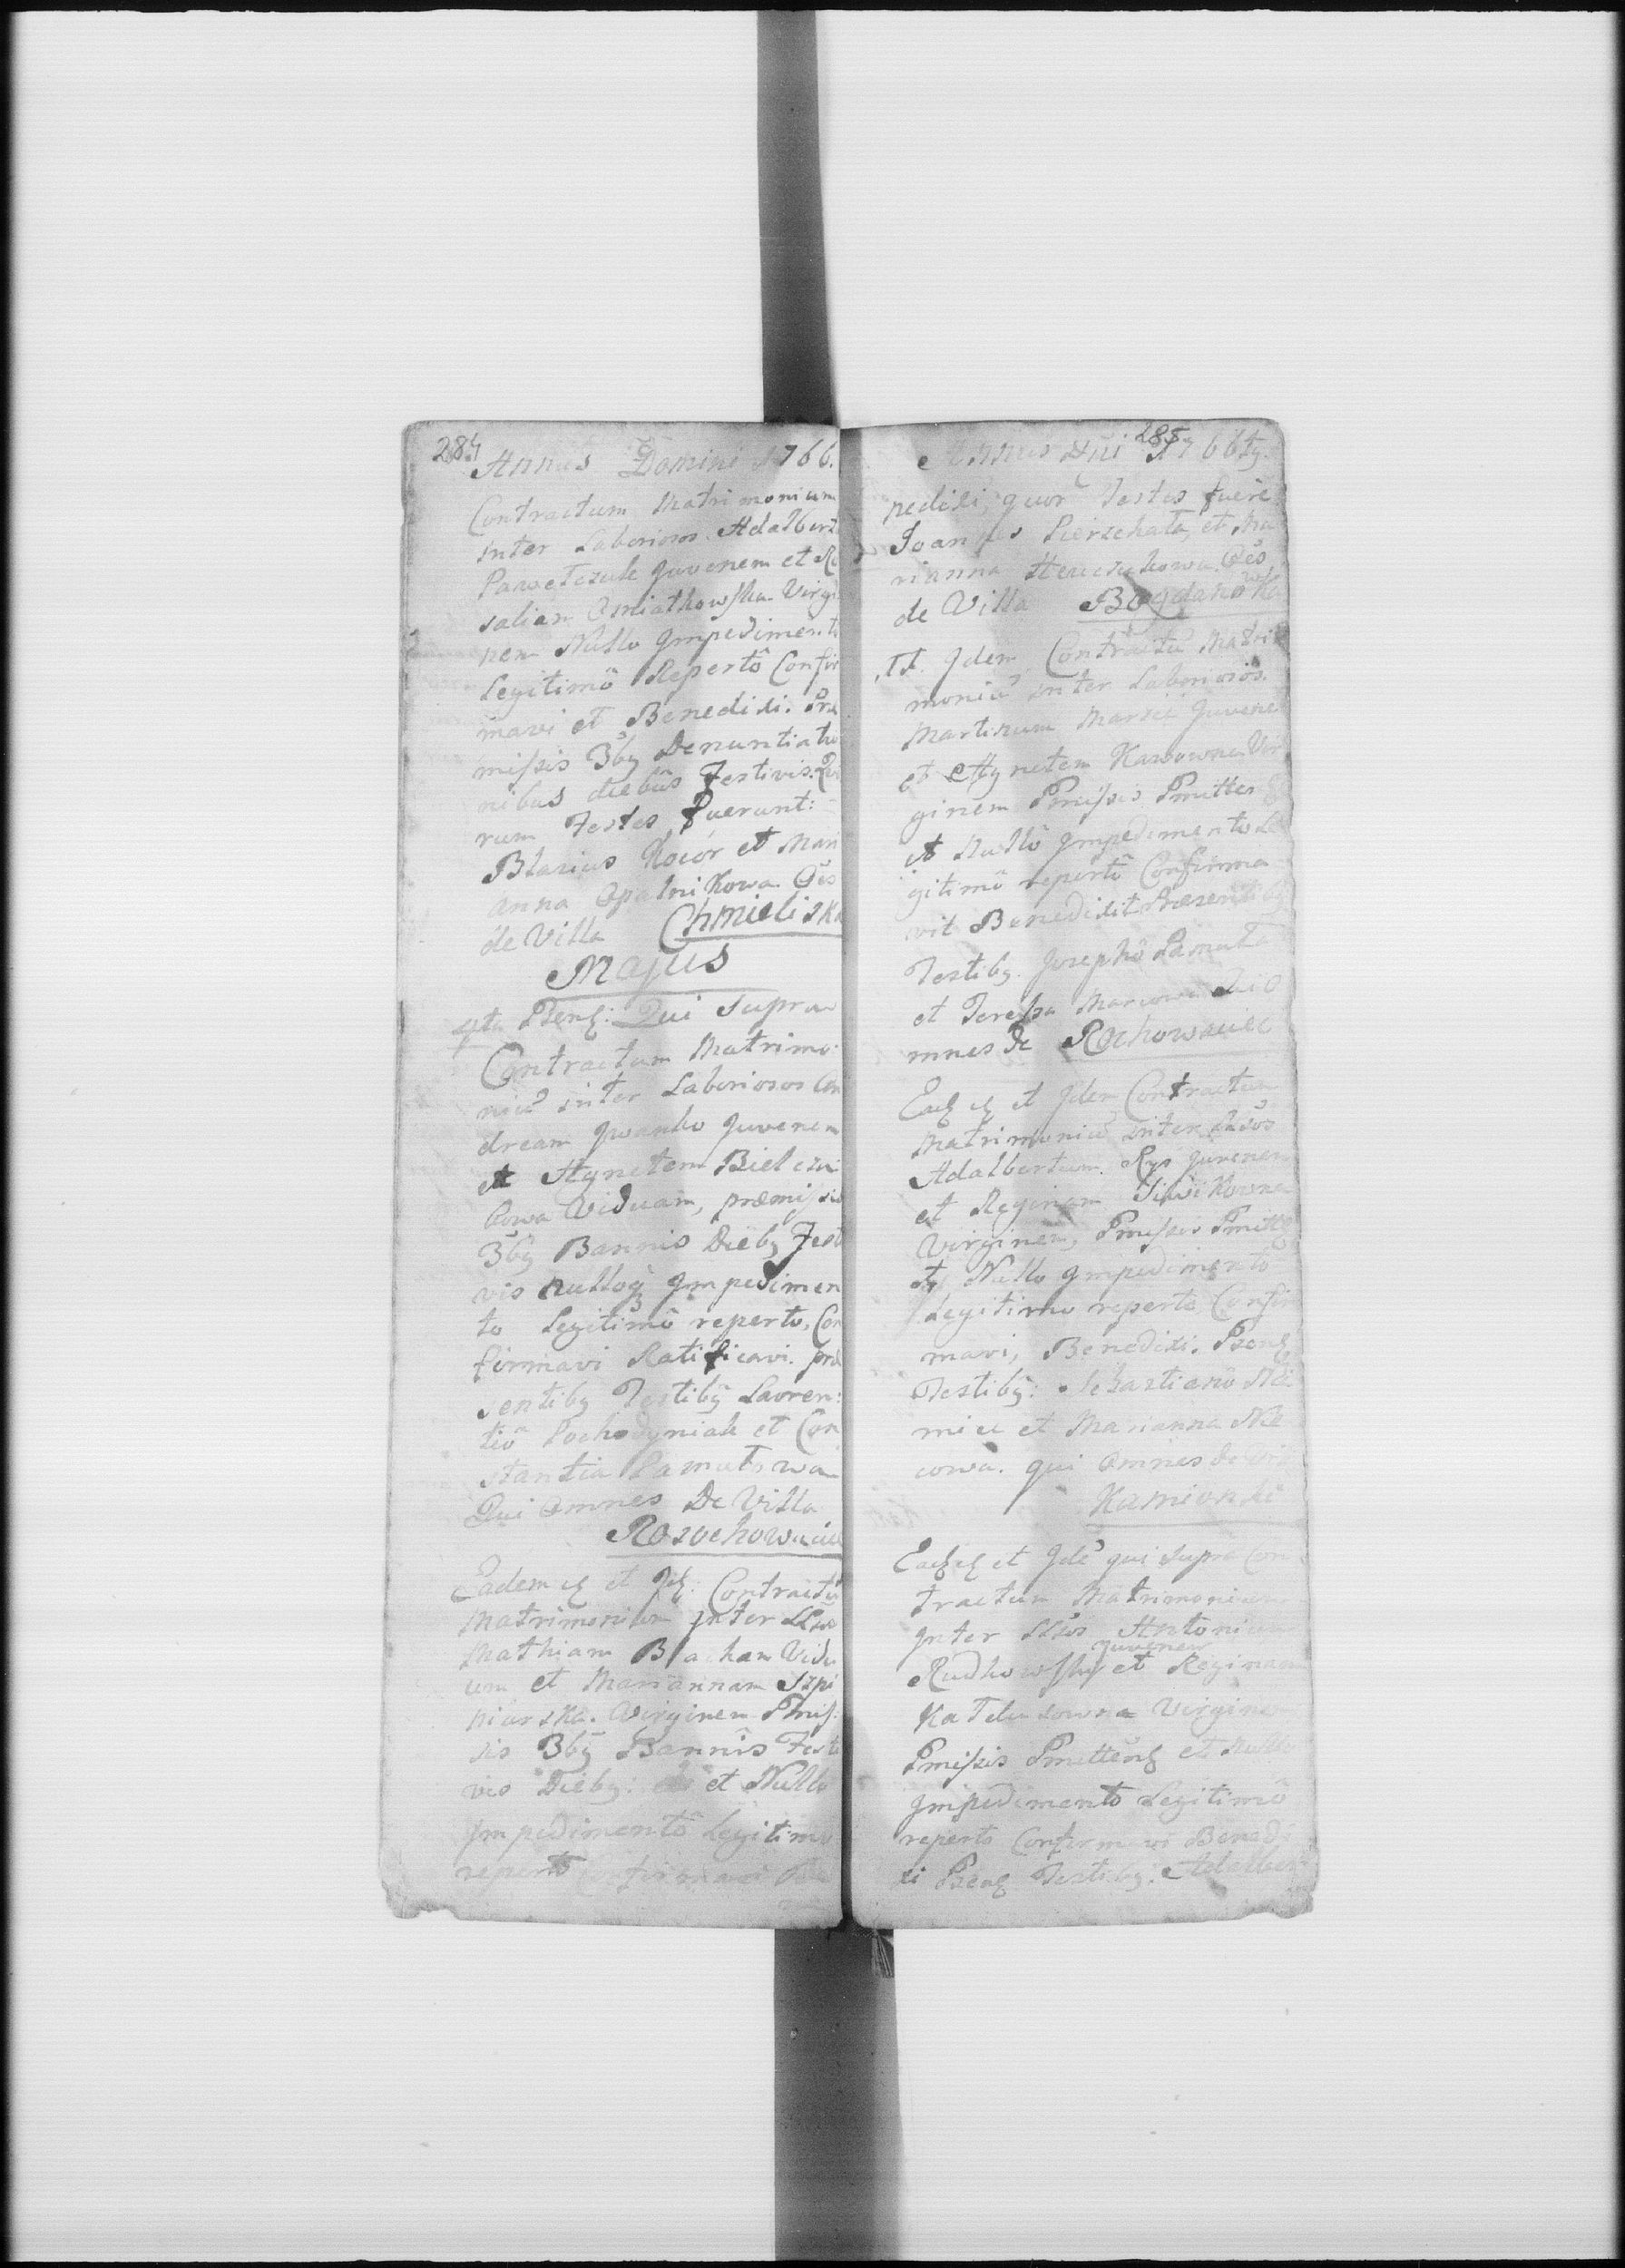 284
Annus Domini 1766.
Contractum Matrimonium
inter Laboriosos Adalbert
Pawelczuk Juvenem et Ro
saliam Gniatkowska Virgi
nem Nullo Impedimento
Legitimô Repertô Confir
mavi et Benedixi. Præ
missis 3bg Denuntiatio
nibus diebus Festivis. Quo
rum Testes fuerunt:
Blasius Kocór et Mari
anna Opalnikowa. Oēs
de Villa Chmieliska
Majus
4ta Psenq: Qui supra
Contractum Matrimo:
niū inter Laboriosos An
dream Iwanko Juvenem
et Agnetem Bielczu:
kowa Viduam, præmissis
3bg Bannis Diebg Festi
vis nulloq Impedimen
to Legitimô reperto, Con
firmavi Ratificavi. præ
sentibg Testibg Lauren:
tiô Pochodyniak et Con
stantia Pamutowa
Qui Omnes De Villa
Rosochowaciec
Eadem q et Id: Contractū
Matrimonium Inter LLsos
Mathiam Blachan Vidu
um et Mariannam Szpi
niarska. Virginem Pmis:
sis 3bg Bannis Festi
vis Diebg: et Nullo
Impedimentô Legitimo
repertô Confirmavi Be
285
Annus Dni 1766tg.
nedixi, quor Testes fuēre
Joannes Pierzchała, et Ma
rianna Oēs
de Villa Bogdanowka
11. Idem Contractū Matri
moniū inter Laboriosos.
Martinum Marzec Juvenē
et Agnetem Karowna Vir
ginem Pmissis Pmitten
et Nullô Impedimento Le
gitimô repertô Confirma
vit Benedixit Præsentibg
Testibg. Josephô Pamuta
et Teressa Marcowa Qui O
mnes de Rochowaciec
Eadq et Idem Contractum
Matrimoniū inter LLsos
Adalbertum. Rys Juvenem
et Reginam Siwikowna
Virginem, Pmissis Pmittq
et Nullo Impedimento
Legitimo reperto, Confir
mavi, Benedixi. Psenq
Testibg: Sebastianô Nie
miec et Marianna Nie
cowa. qui Omnes de Vil
Kamionki
Eadq et Idē qui supra Con
tractum Matrimonium
Inter LLsos Antonium
Juvenem
Rudkowsky et Reginam
Virginem
Pmissis Pmittenq et Nullo
Impedimento Legitimô
reperto Confirmavi Benedi
xi Psenq Testibg: Adalber